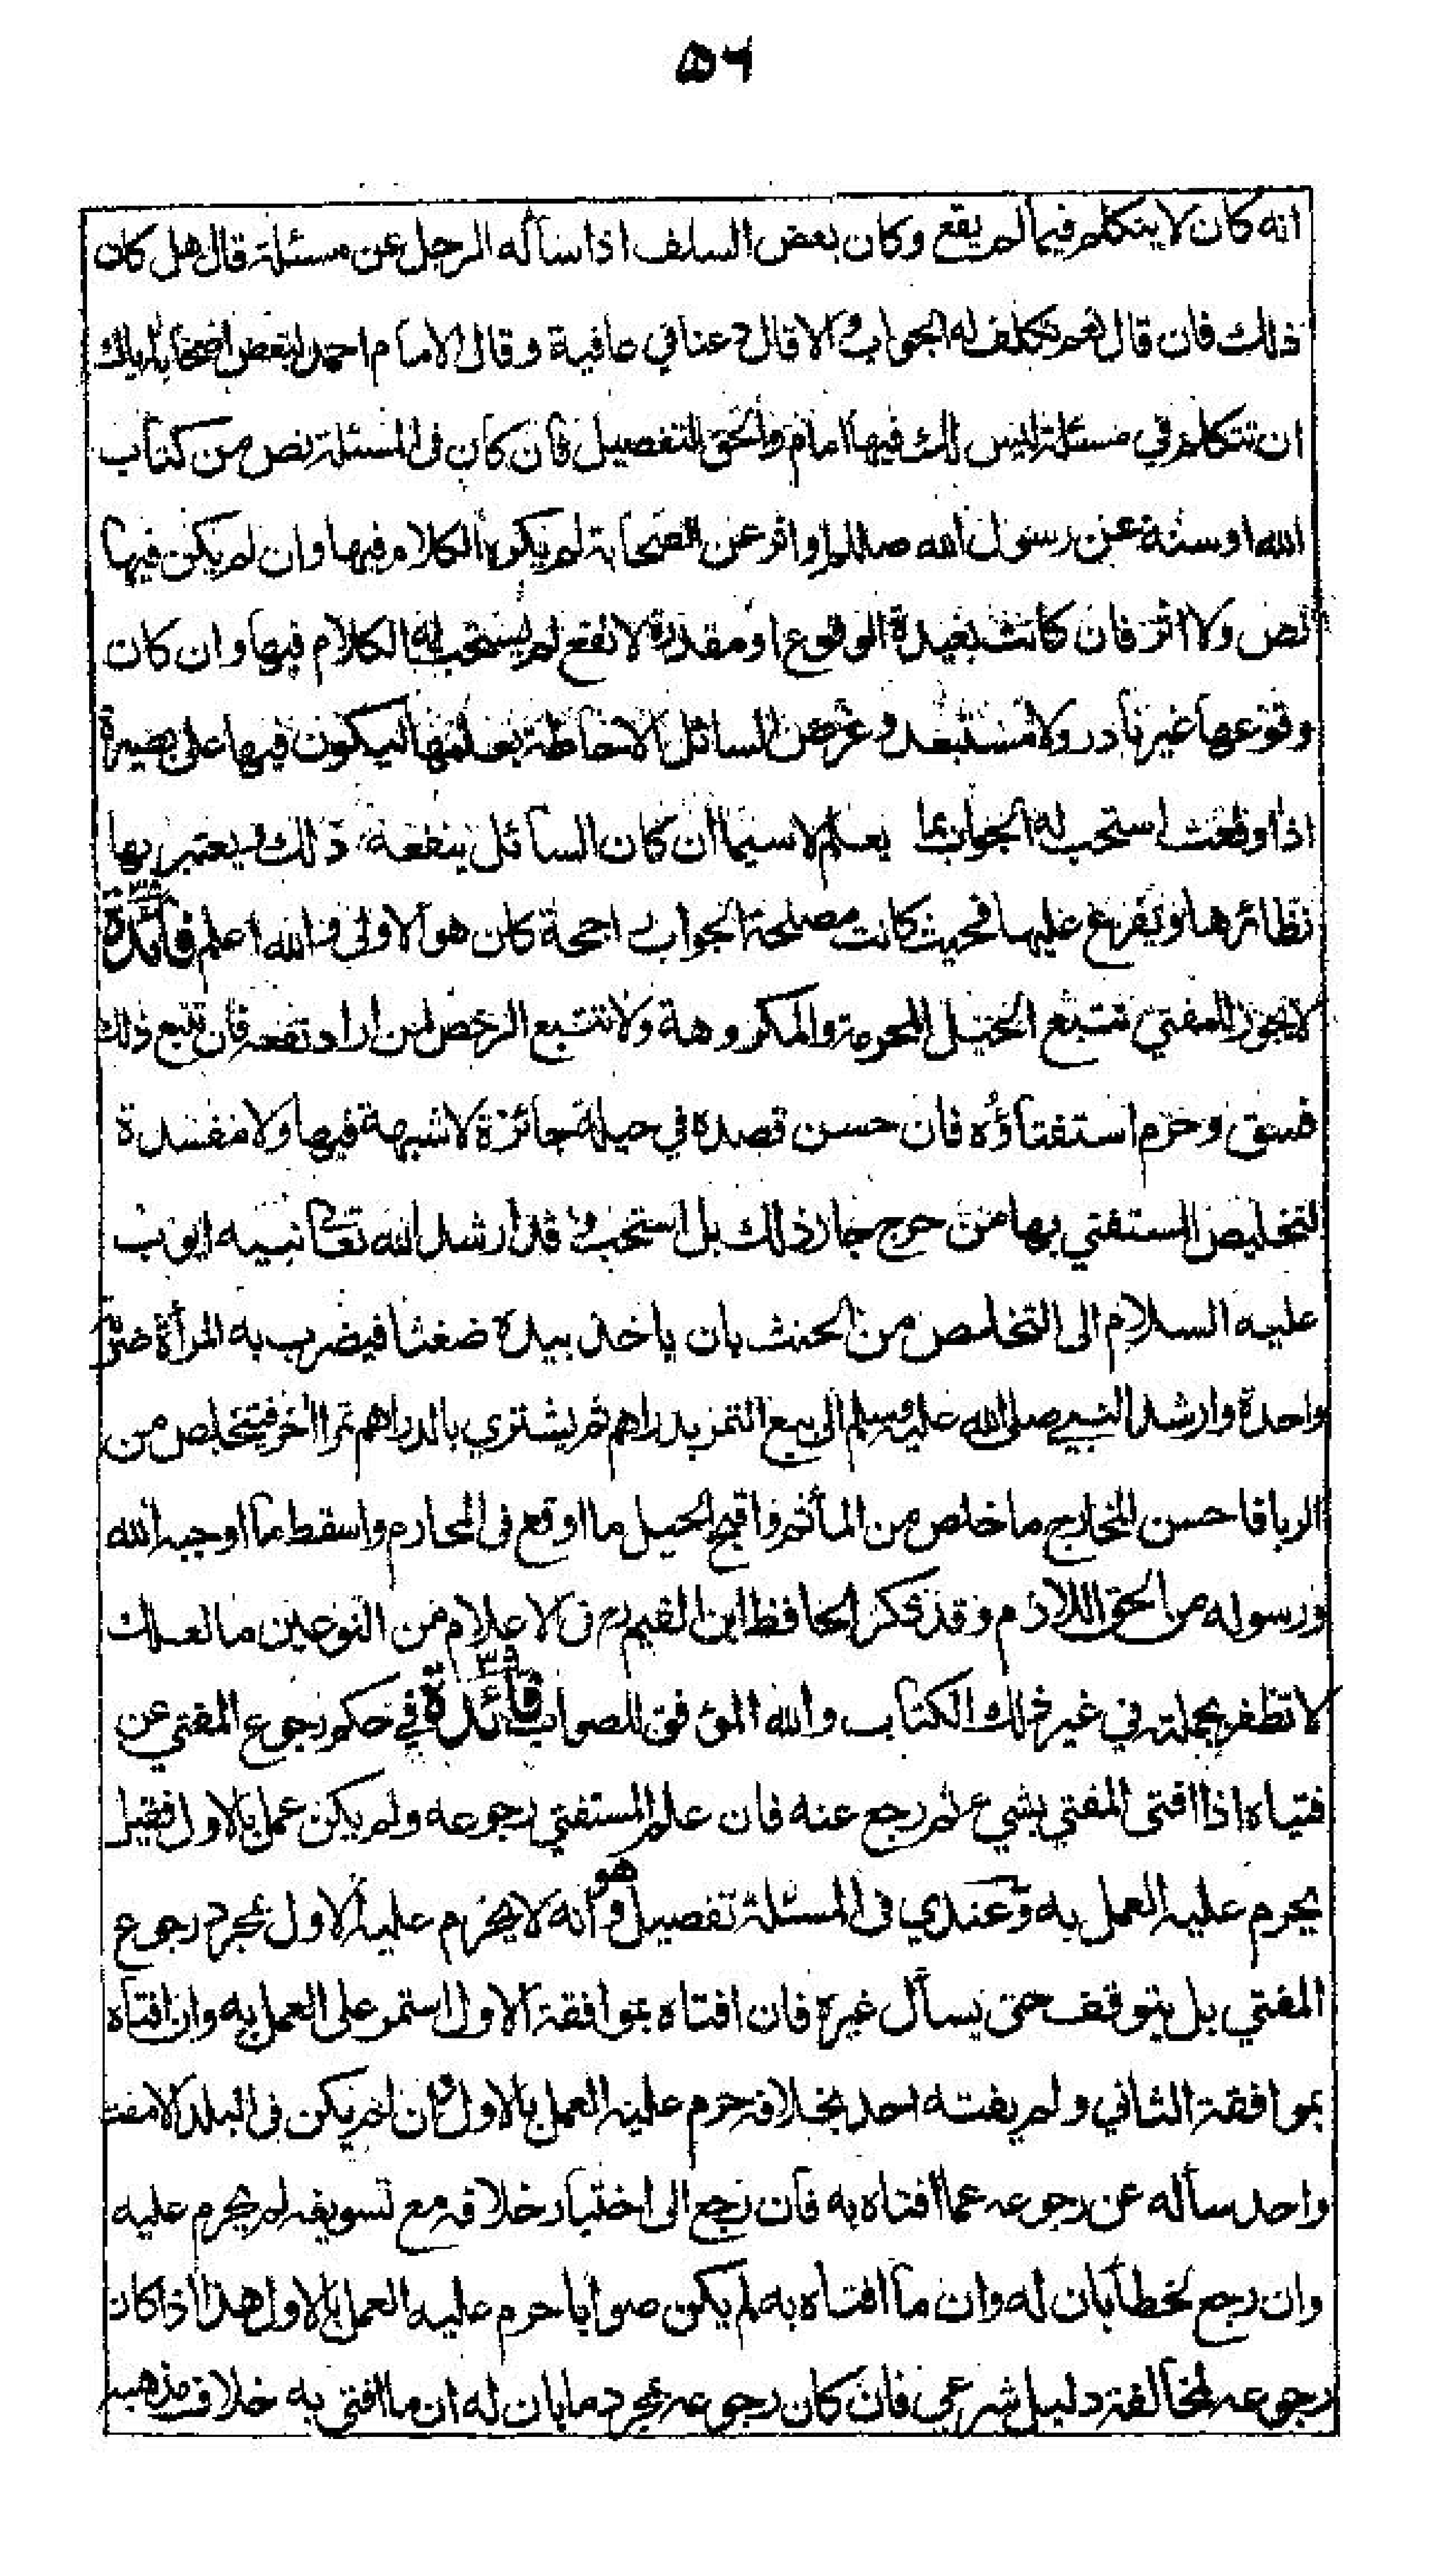 ٥٦
انه كان لا يتكلم فيما لم يقع وكان بعض السلف اذا سأله الرجل عن مسئلة قال هل كان
ذلك فان قال نعم تكلف له الجواب والا قال دعنا في عافية وقال الامام احمد لبعض اصحابه اياك
ان تتكلم في مسئلة ليس لك فيها امام والحق التفصيل فان كان فى المسئلة نص من كتاب
الله او سنة عن رسول الله صللم او اثر عن الصحابة لم يكره الكلام فيها وان لم يكن فيها
نص ولا اثر فان كانت بعيدة الوقوع او مقدرة لا تقع لم يستحب له الكلام فيها وان كان
وقوعها غير نادر ولا مستبعد وغرض السائل الاحاطة بعلمها ليكون فيها على بصيرة
اذا وقعت استحب له الجواب بما يعلم لا سيما ان كان السائل ينفعه ذلك ويعتبر بها
نظائرها ويفرع عليها فحيث كانت مصلحة الجواب راجحة كان هو الاولى والله اعلم فائدة
لا يجوز للمفتي تتبع الحيل المحرمة والمكروهة ولا تتبع الرخص لمن اراد نفعه فان تتبع ذلك
فسق وحرم استفتاؤه فان حسن قصده في حيلة جائزة لا شبهة فيها ولا مفسدة
لتخليص المستفتي بها من حرج جاز ذلك بل استحب وقد ارشد الله تعالى نبيه ايوب
عليه السلام الى التخلص من الحنث بان ياخذ بيده ضغثا فيضرب به المرأة ضربة
واحدة وارشد النبي صلى الله عليه وسلم الى بيع التمر بدراهم ثم يشتري بالدراهم تمرا اخر فيتخلص من
الربا فاحسن المخارج ما خلص من المأثم واقبح الحيل ما اوقع فى المحارم واسقط ما اوجبه الله
ورسوله من الحق اللازم وقد ذكر الحافظ ابن القيم رح فى الاعلام من النوعين ما لعلك
لا تظفر بجملته في غير ذلك الكتاب والله الموفق للصواب فائدة في حكم رجوع المفتي عن
فتياه اذا افتى المفتي بشيء ثم رجع عنه فان علم المستفتي رجوعه ولم يكن عمل بالاول فقيل
يحرم عليه العمل به وعندي فى المسئلة تفصيل وهو انه لا يحرم عليه الاول بمجرد رجوع
المفتي بل يتوقف حتى يسأل غيره فان افتاه بموافقة الاول استمر على العمل به وان افتاه
بموافقة الثاني ولم يفته احد بخلافه حرم عليه العمل بالاول فان لم يكن فى البلد الا مفت
واحد سأله عن رجوعه عما افتاه به فان رجع الى اختيار خلافه مع تسويغه لم يحرم عليه
وان رجع لخطأ بان له وان ما افتاه به لم يكن صوابا حرم عليه العمل بالاول هذا اذا كان
رجوعه لمخالفة دليل شرعي فان كان رجوعه بمجرد ما بان له ان ما افتى به خلاف مذهبه